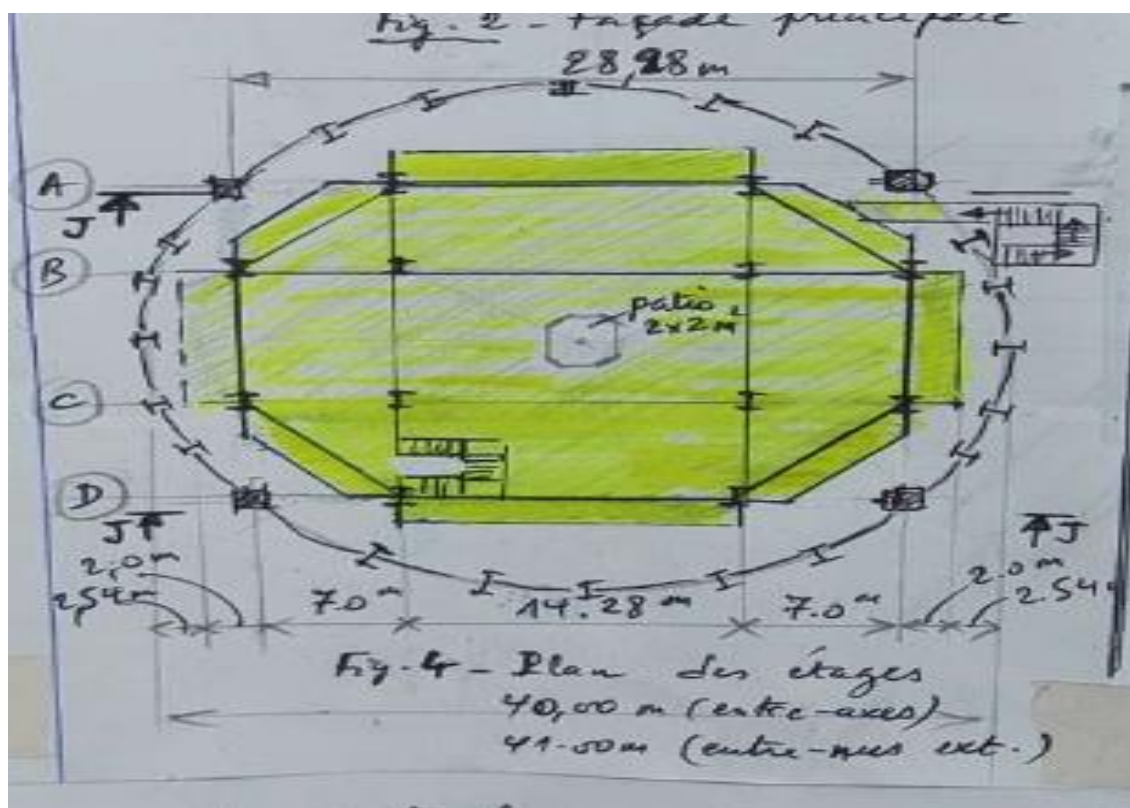 Fig. 2 - Façade principale
28,28 m
A
J
B
patio
2x2 m
C
D
J
J
2,0 m
2,54 m
7.0 m
14.28 m
7.0 m
2.0 m
2.54
Fig. 4 - Plan des étages
40,00 m (entre-axes)
41.50 m (entre-nus ext.)